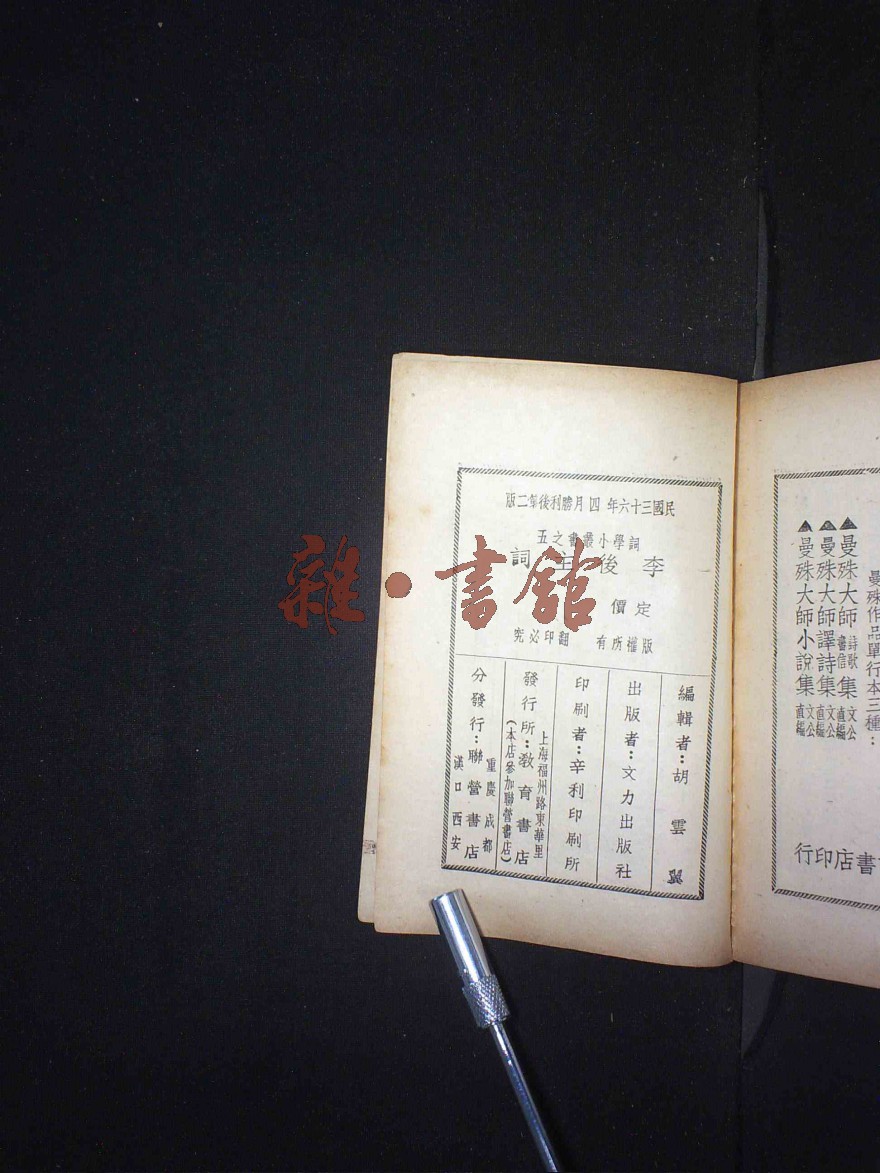 民國三十六年四月勝利後第二版
詞學小叢書之五
李後主詞
定價
版權所有 翻印必究
編輯者：胡雲翼
出版者：文力出版社
印刷者：辛利印刷所
上海福州路東華里
發行所：教育書店
(本店參加聯營書店)
重慶成都
分發行：聯營書店
漢口西安
曼殊作品單行本三種：
▲曼殊大師詩歌書信集 文公直編
▲曼殊大師譯詩集 文公直編
▲曼殊大師小說集 文公直編
書店印行
雜·書館